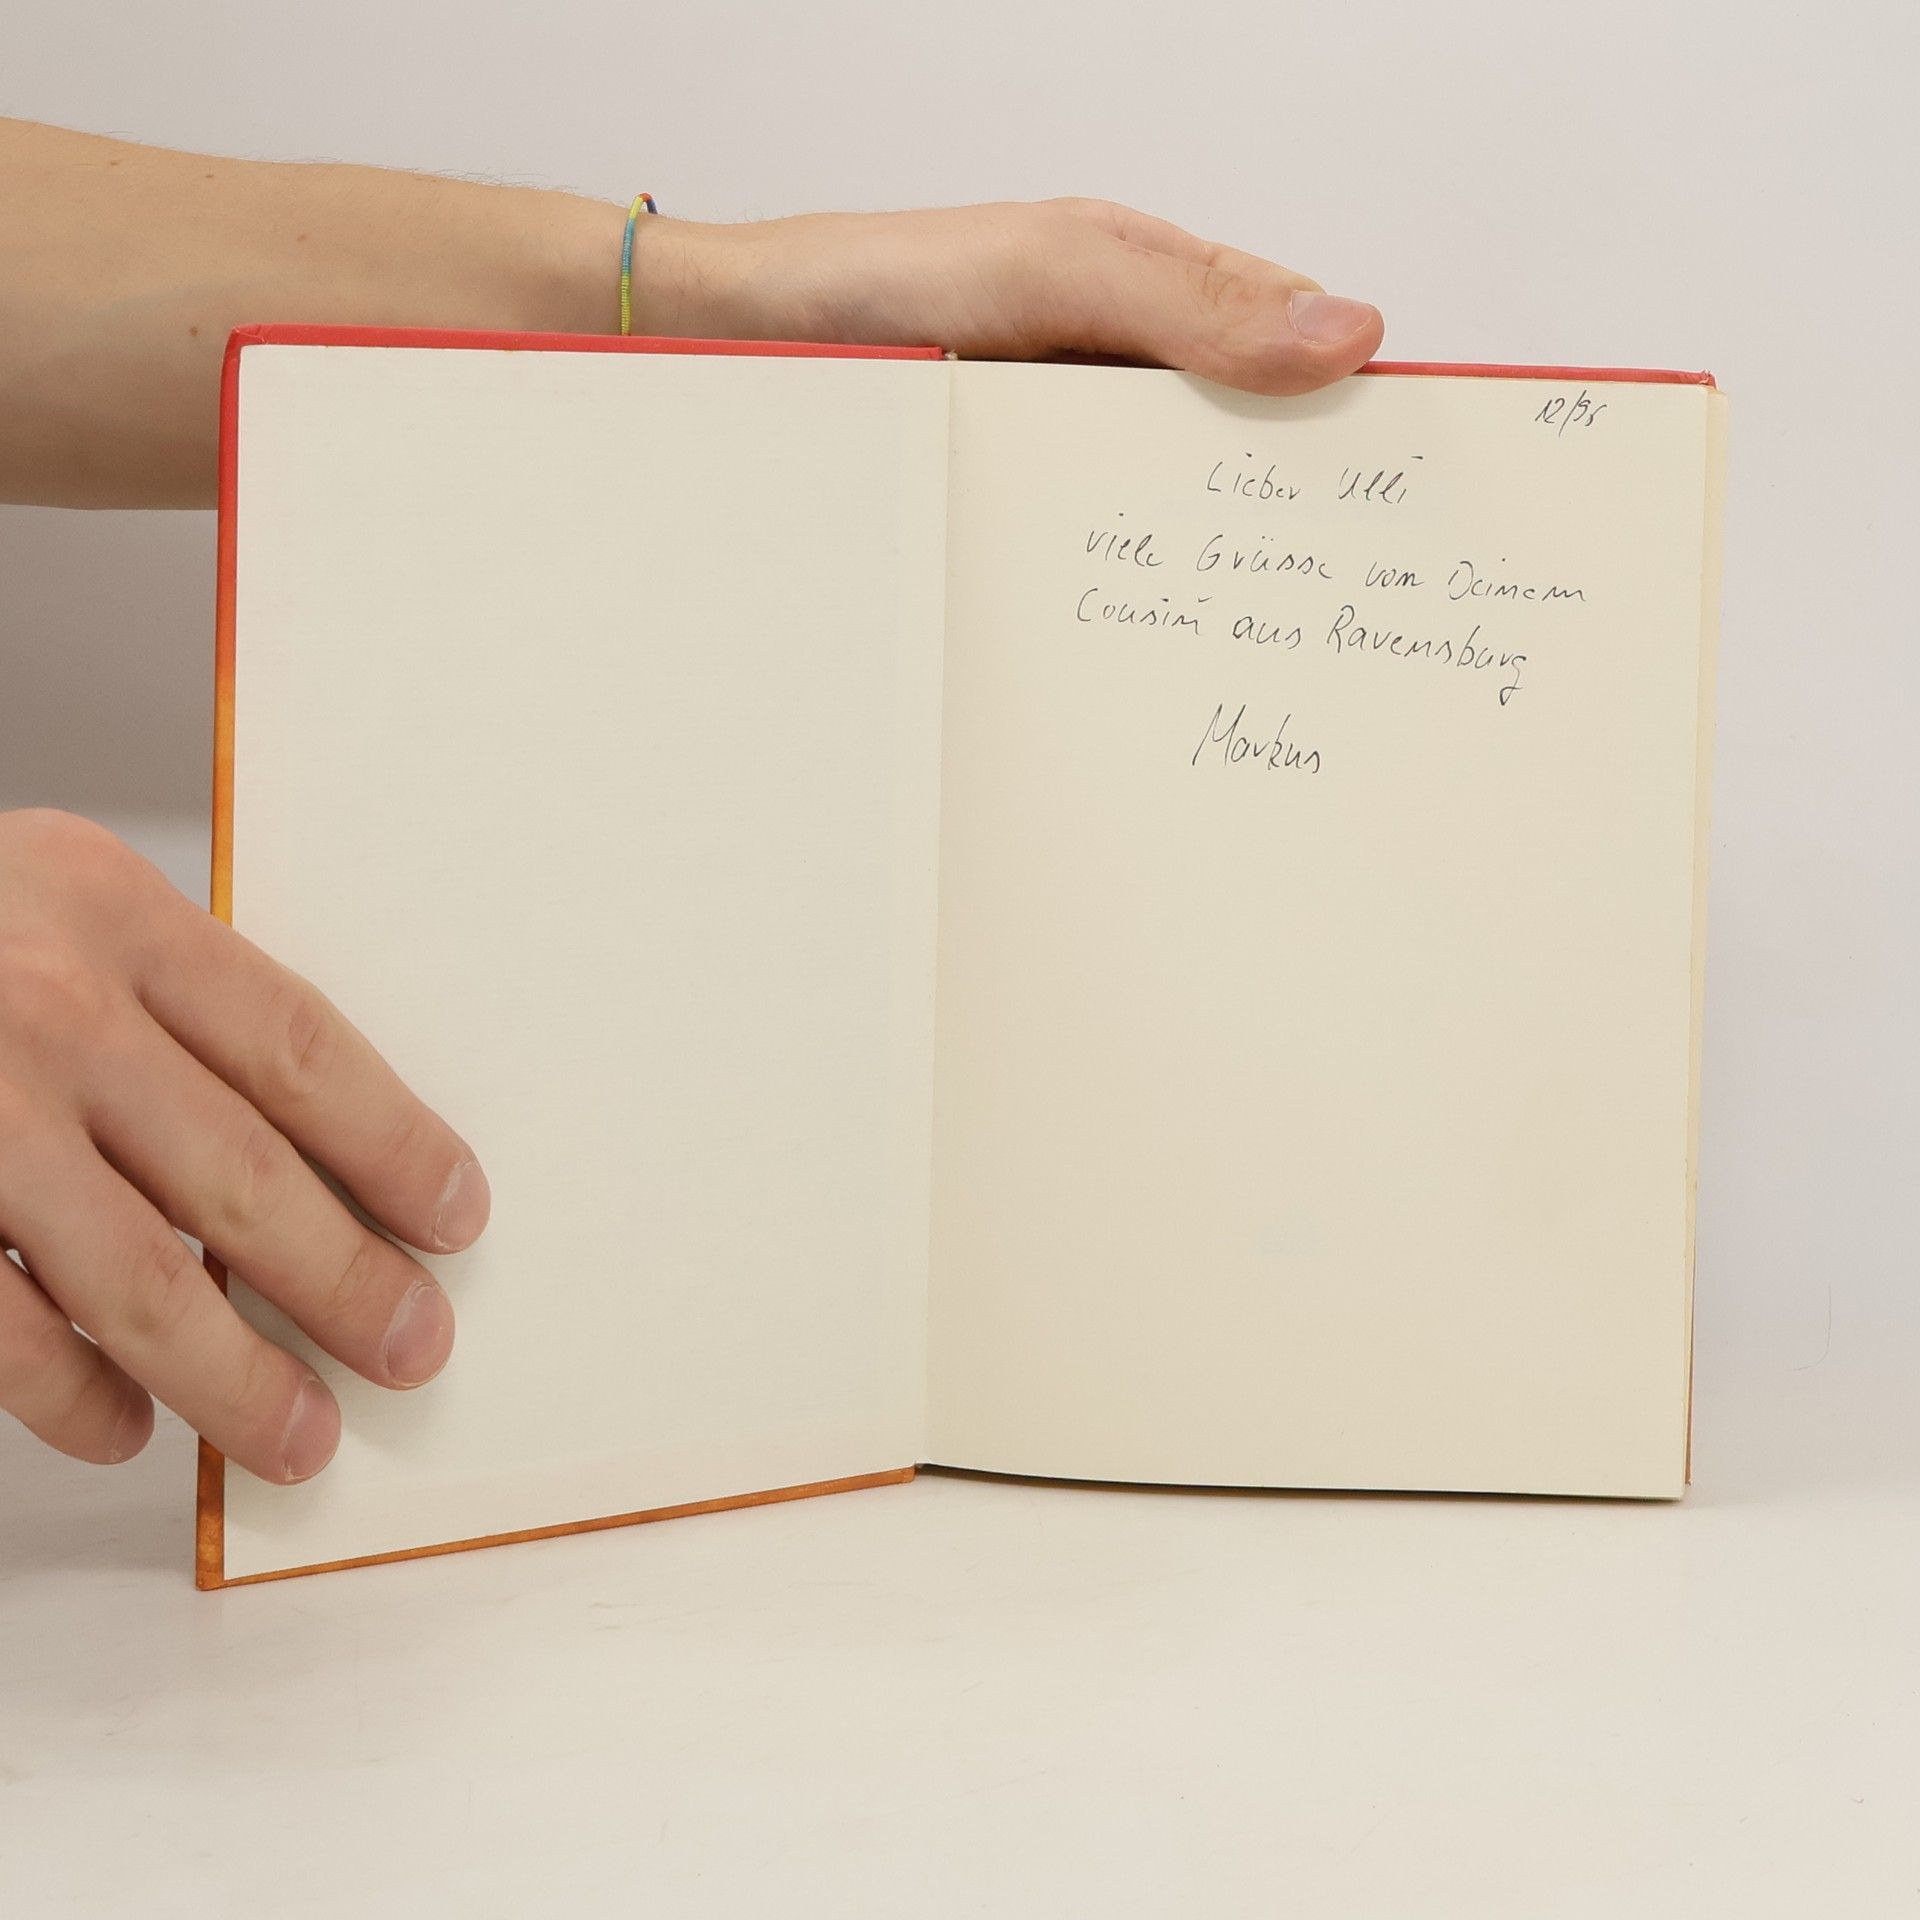 12/95
Lieber Ulli
viele Grüsse von Deinem
Cousin aus Ravensburg
Markus